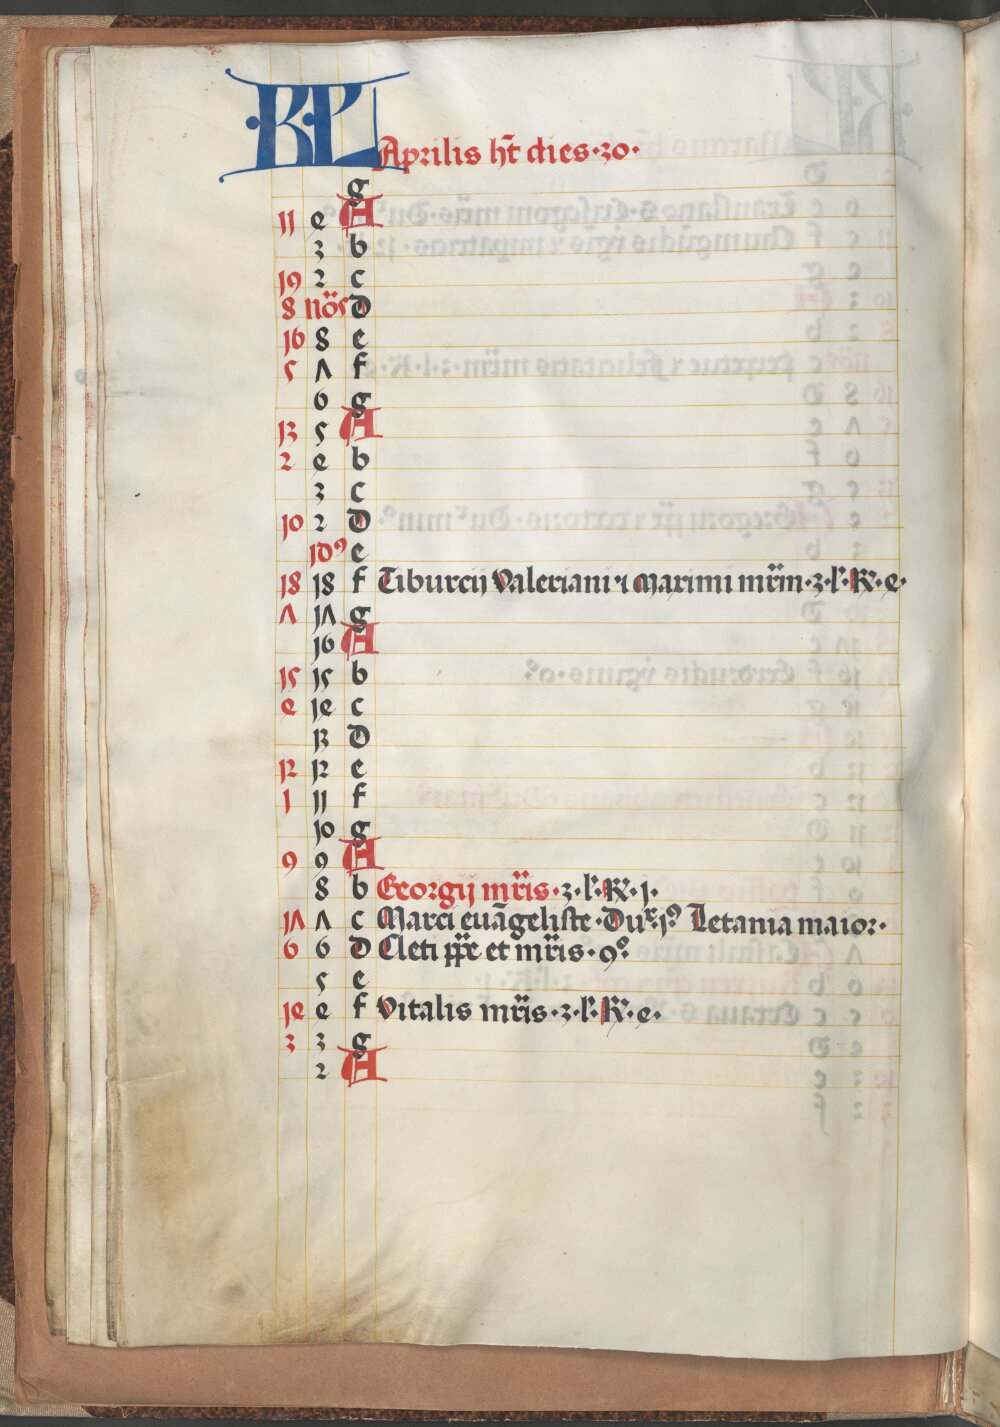 KL Aprilis ht̄ dies·30·
g
11 e A
3 b
19 2 c
8 nōs d
16 8 e
5 7 f
6 g
13 5 A
2 4 b
3 c
10 2 d
idꝰ e
18 18 f Tiburcii Valeriani ⁊ Maximi mr̄m·3·l·R·4·
7 17 g
16 A
15 15 b
4 14 c
13 d
12 12 e
1 11 f
10 g
9 9 A
8 b Georgij mr̄is·3·l·R·j·
17 7 c Marci euāgeliste·Dux·jꝰ Letania maior·
6 6 d Cleti pp̄e et mr̄is·9º
5 e
14 4 f Vitalis mr̄is·3·l·R·4·
3 3 g
2 A